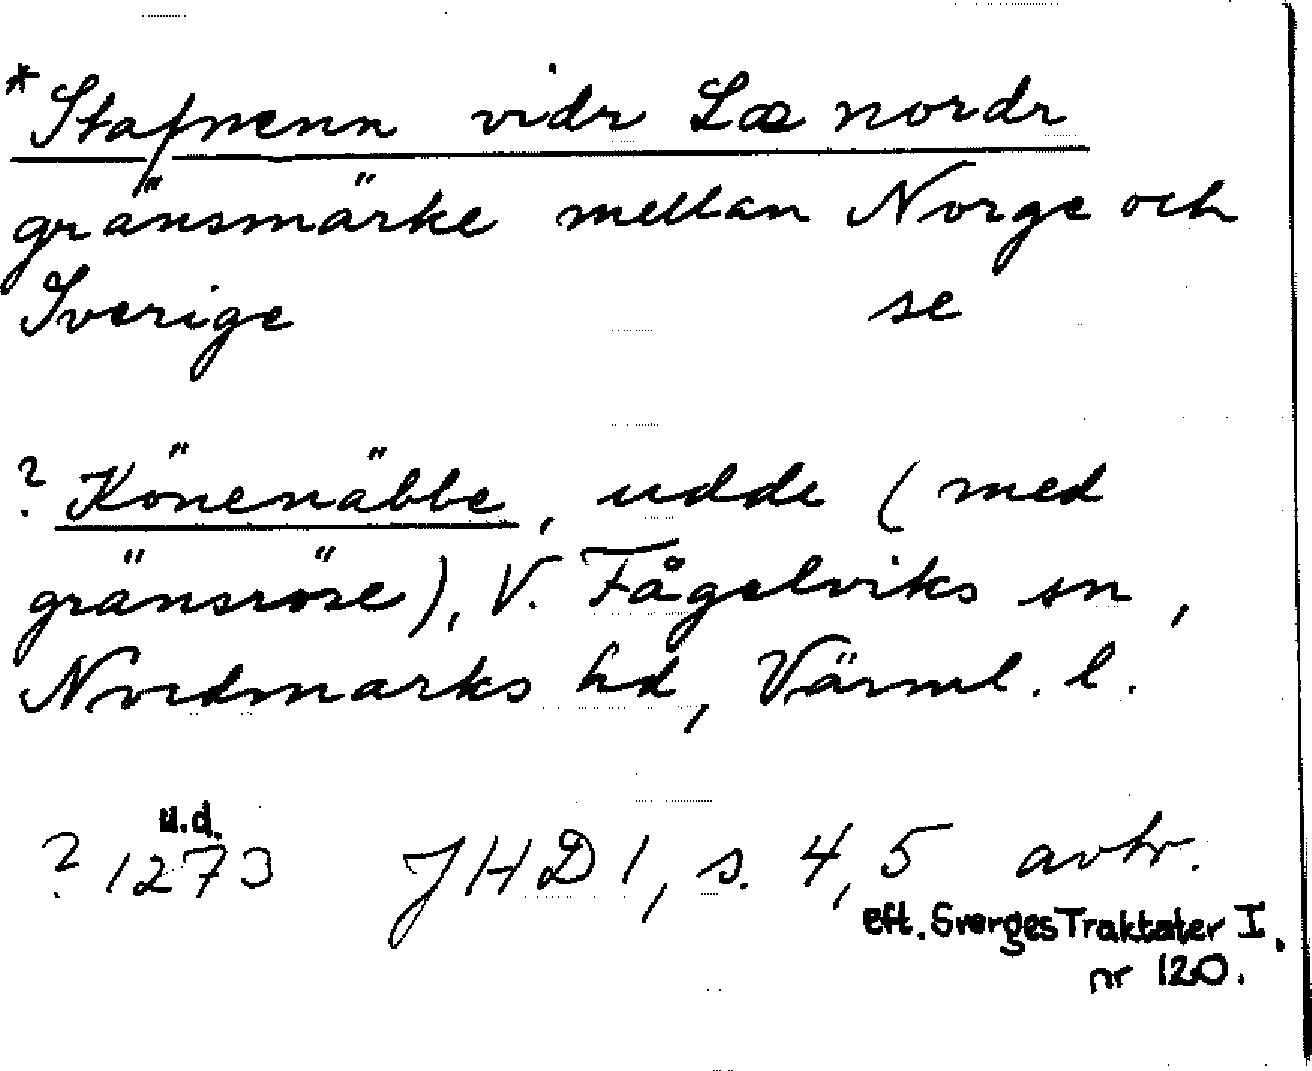 *Stafnenn vidr Læ nordr
gränsmärke mellan Norge och
Sverige se
? Könenäbbe, udde (med
gränsröse), V. Fågelviks sn,
Nordmarks hd, Värml. l.
u.d.
? 1273 JHD 1, s. 4, 5 avtr.
eft. Sverges Traktater I.
nr 120.